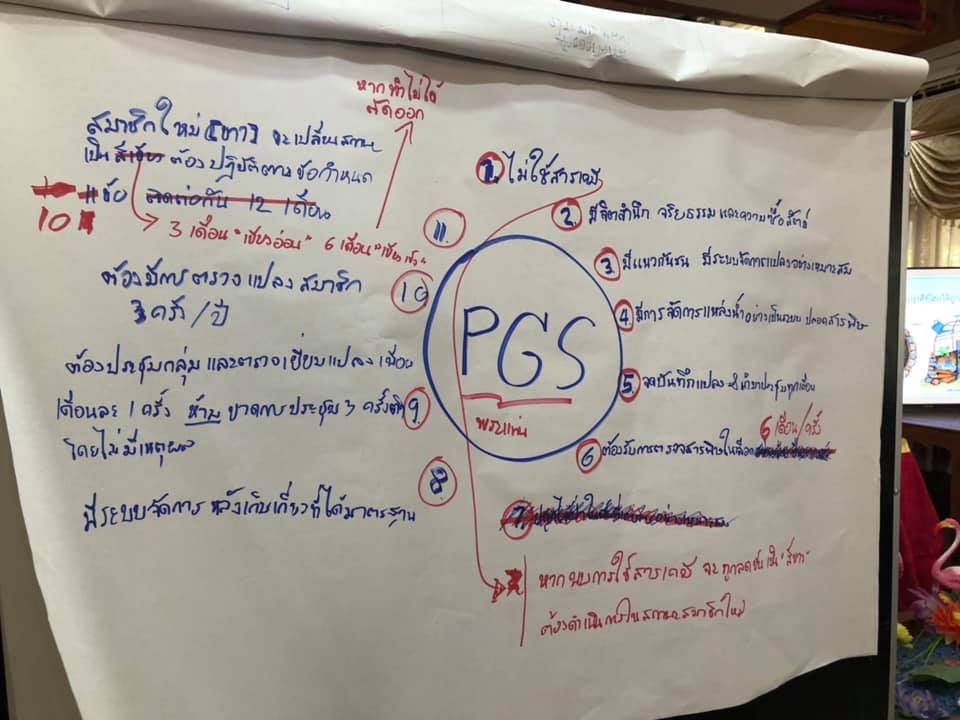 หากทำไม่ได้
คัดออก
สมาชิกใหม่ (ขาว) จะเปลี่ยนสถานะ
เป็น ต้องปฏิบัติตามข้อกำหนด
11 ข้อ ติดต่อกัน 12 เดือน
10
3 เดือน "เขียวอ่อน" 6 เดือน "เขียวเข้ม"
11.
ต้องมีการตรวจแปลงสมาชิก
3 ครั้ง/ปี
10
ต้องประชุมกลุ่ม และตรวจเยี่ยมแปลงเพื่อน
เดือนละ 1 ครั้ง ห้ามขาดการประชุม 3 ครั้ง
โดยไม่มีเหตุผล
9.
8.
มีระบบจัดการหลังเก็บเกี่ยวที่ได้มาตรฐาน
PGS
พระแท่น
1. ไม่ใช้สารเคมี
2. มีจิตสำนึก จริยธรรม และความซื่อสัตย์
3. มีแนวกันชน มีระบบจัดการแปลงอย่างเหมาะสม
4 มีการจัดการแหล่งน้ำอย่างเป็นระบบ ปลอดสารพิษ
5. จดบันทึกแปลง นำมาประชุมทุกเดือน
6 เดือน/ครั้ง
6 ต้องรับการตรวจสารพิษในเลือด
7.
หากพบการใช้สารเคมี จะถูกลดขั้นเป็น "สีขาว"
ต้องดำเนินการในสถานะสมาชิกใหม่